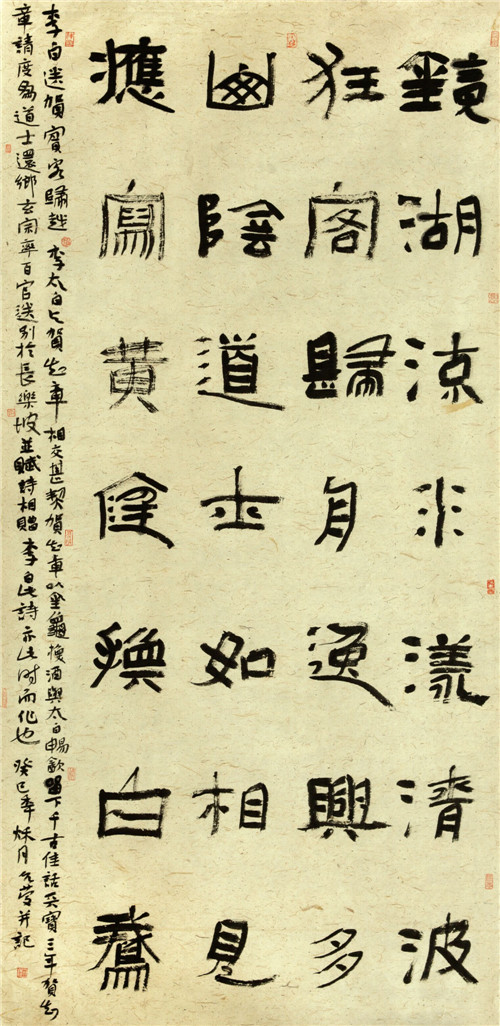 鏡湖流水漾清波
狂客歸舟逸興多
山陰道士如相見
應寫黃庭換白鵞
李白送賀賓客歸越 李太白與賀知章相交甚契賀知章以金龜換酒與太白暢飲留下千古佳話天寶三年賀知
章請度為道士還鄉玄宗率百官送別於長樂坡並賦詩相貽李白此詩亦此時而作也 癸巳年秋月并記